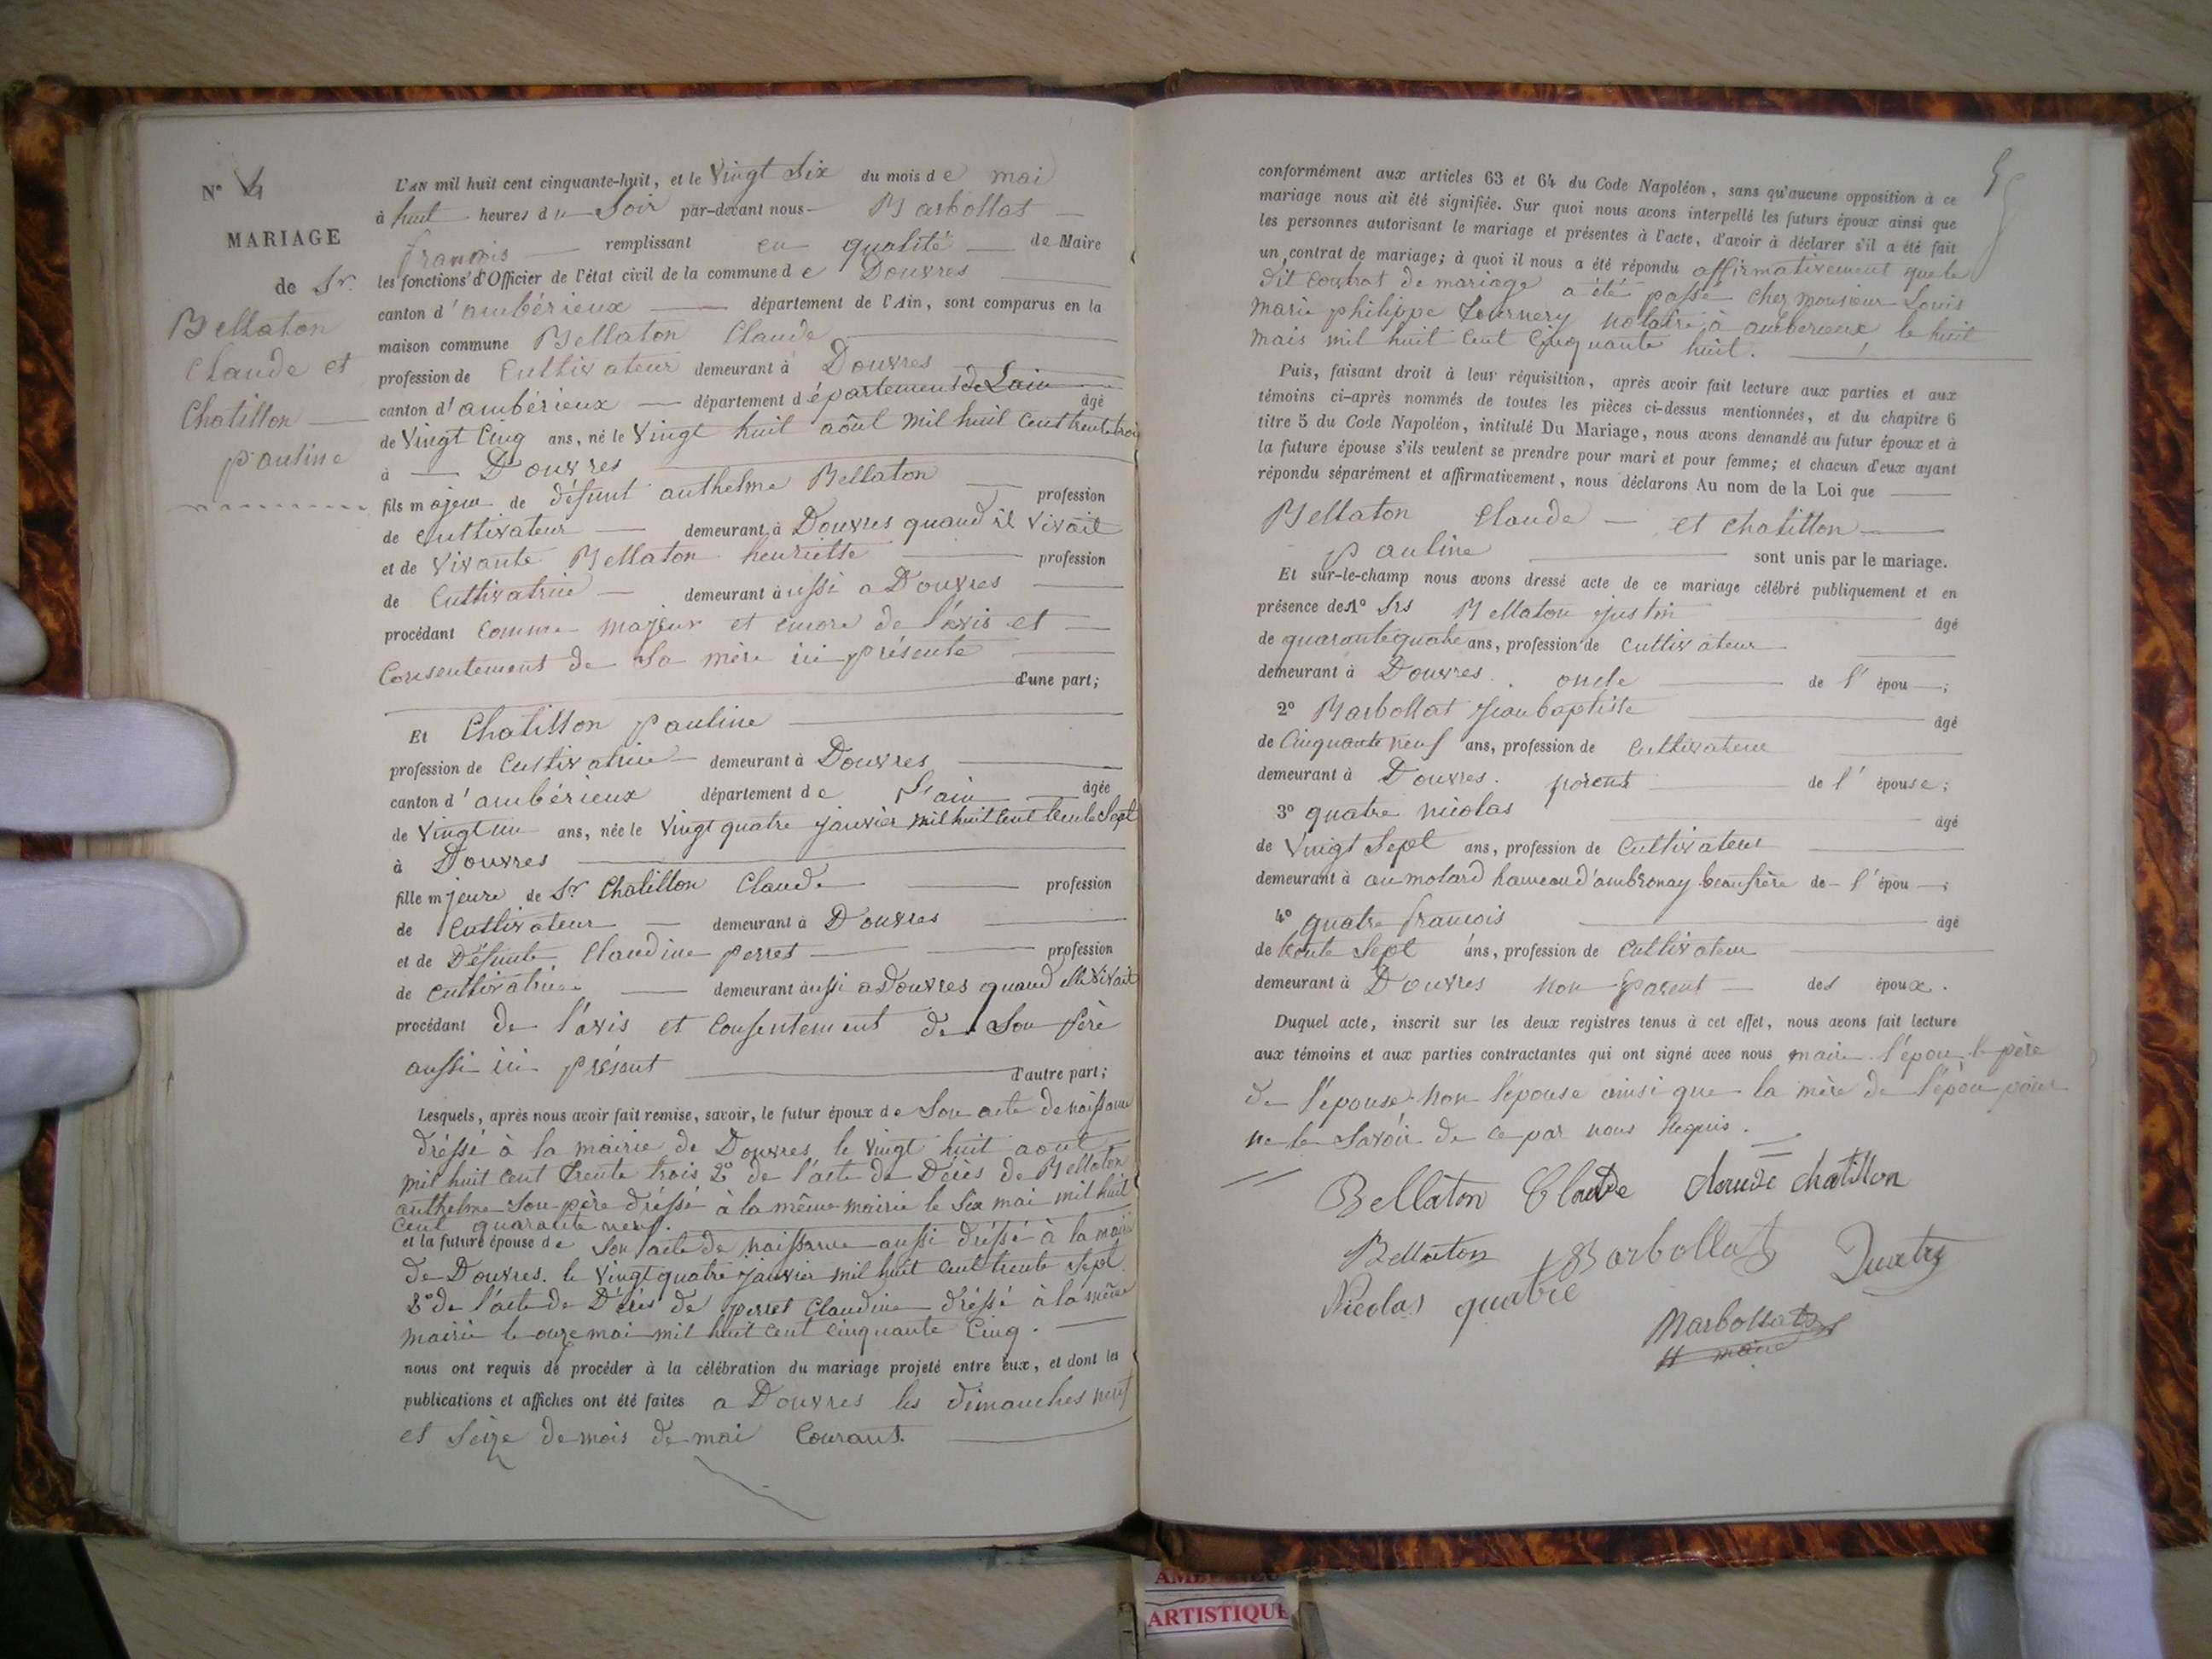 N° 4
MARIAGE
de Sr.
Bellaton
Claude et
Chatillon
pauline
L'AN mil huit cent cinquante-huit, et le Vingt Six du mois de mai
à huit heures du Soir par-devant nous Barbollat
francois remplissant en qualité de Maire
les fonctions d'Officier de l'état civil de la commune de Douvres
canton d'ambérieux département de l'Ain, sont comparus en la
maison commune Bellaton Claude
profession de Cultivateur demeurant à Douvres
canton d'ambérieux département département de Lain âgé
de Vingt Cinq ans, né le Vingt huit aôut mil huit Cent trente trois
à Douvres
fils majeur de défunt anthelme Bellaton profession
de Cultivateur demeurant à Douvres quand il Vivait
et de Vivante Bellaton henriette profession
de Cultivatrice demeurant aussi a Douvres
procédant Comme majeur et encore de l'avis et
Consentement de Sa mère ici présente
d'une part;
Et Chatillon pauline
profession de Cultivatrice demeurant à Douvres
canton d'ambérieux département de l'ain âgée
de Vingt un ans, née le Vingt quatre janvier mil huit Cent trente Sept
à Douvres
fille mjeure de Sr Chatillon Claude profession
de Cultivateur demeurant à Douvres
et de Défunte Claudine perret profession
de Cultivatrice demeurant aussi a Douvres quand elle Vivait
procédant de l'avis et Consentement de Son père
aussi ici présent d'autre part;
Lesquels, après nous avoir fait remise, savoir, le futur époux de Son acte de naissance
dréssé à la mairie de Douvres le Vingt huit aout
mil huit Cent trente trois 2° de l'acte de Décès de Bellaton
anthelme Son père dréssé à la même mairie le Six mai mil huit
Cent quarante neuf.
et la future épouse de Son acte de naissance aussi dréssé à la mairie
de Douvres. le Vingt quatre janvier mil huit Cent trente Sept.
2° de l'acte de Décès de perret Claudine dréssé à la même
mairie le onze mai mil huit Cent Cinquante Cinq.
nous ont requis de procéder à la célébration du mariage projeté entre eux, et dont les
publications et affiches ont été faites a Douvres les dimanches neuf
et Seize de mois de mai Courant.
conformément aux articles 63 et 64 du Code Napoléon, sans qu'aucune opposition à ce
mariage nous ait été signifiée. Sur quoi nous avons interpellé les futurs époux ainsi que
les personnes autorisant le mariage et présentes à l'acte, d'avoir à déclarer s'il a été fait
un contrat de mariage; à quoi il nous a été répondu affirmativement que le
dit Contrat de mariage a été passé chez monsieur Louis
marie philippe notaire à amberieux le huit
mais mil huit Cent Cinquante huit.
Puis, faisant droit à leur réquisition, après avoir fait lecture aux parties et aux
témoins ci-après nommés de toutes les pièces ci-dessus mentionnées, et du chapitre 6
titre 5 du Code Napoléon, intitulé Du Mariage, nous avons demandé au futur époux et à
la future épouse s'ils veulent se prendre pour mari et pour femme; et chacun d'eux ayant
répondu séparément et affirmativement, nous déclarons Au nom de la Loi que
Bellaton Claude et Chatillon
Pauline sont unis par le mariage.
Et sur-le-champ nous avons dressé acte de ce mariage célébré publiquement et en
présence des 1° Srs Bellaton justin âgé
de quarante quatre ans, profession de Cultivateur
demeurant à Douvres. oncle de l'épou ;
2° Barbollat jean baptiste âgé
de Cinquante neuf ans, profession de Cultivateur
demeurant à Douvres. parent de l'épouse;
3° quatre nicolas âgé
de Vingt Sept ans, profession de Cultivateur
demeurant à au molard hameau d'ambronay beaufrère de l'épou ;
4° quatre francois âgé
de trente Sept ans, profession de Cultivateur
demeurant à Douvres non parent des époux.
Duquel acte, inscrit sur les deux registres tenus à cet effet, nous avons fait lecture
aux témoins et aux parties contractantes qui ont signé avec nous maire l'épou le père
de l'épouse. non l'épouse ainsi que la mère de l'épou pour
ne le Savoir de ce par nous Requis.
Bellaton Claude Claude Chatillon
Bellaton Barbollat
Nicolas quatre
Barbollat
maire
ARTISTIQUE